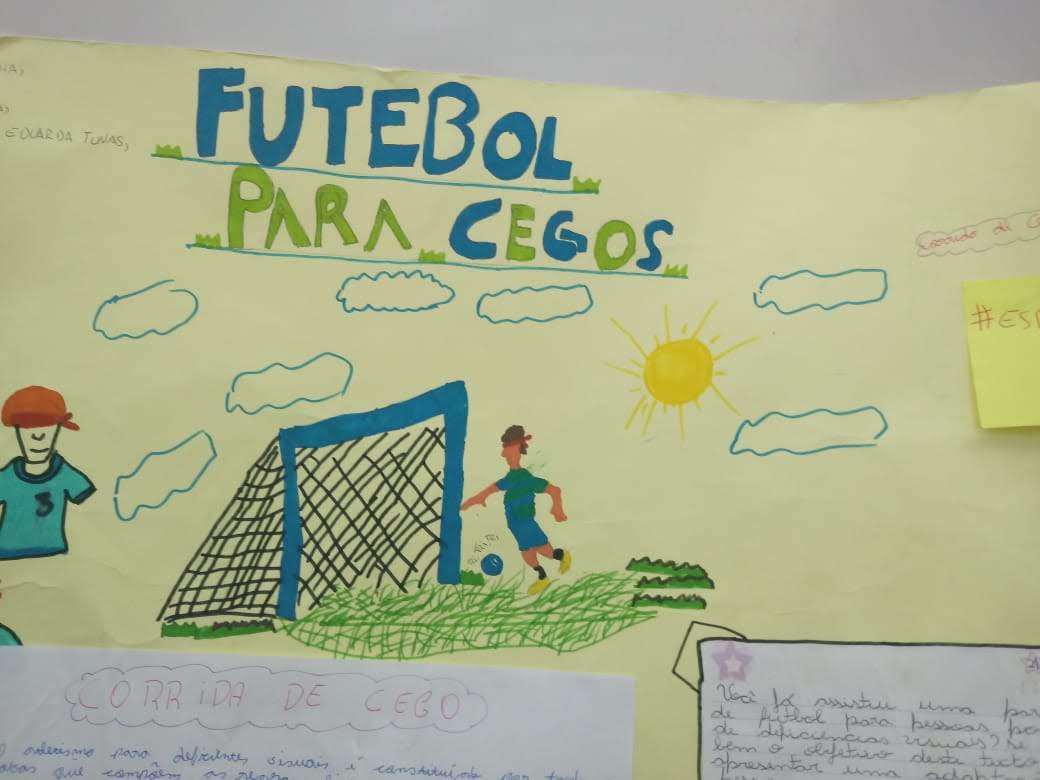 EDUARDA TUNAS,
FUTEBOL
PARA CEGOS
#ESP
3
CORRIDA DE CEGO
O atletismo para deficientes visuais é constituído por
que compõem as
Você já assistiu uma par
de fútbol para pessoas, po
de deficiencias visuais? Se
bem o objetivo deste texto
apresentar uma